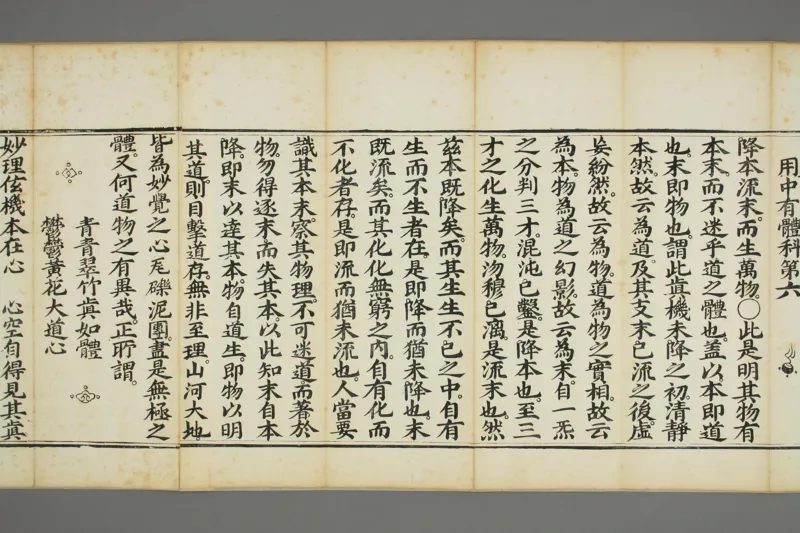 用中有體科第六
降本流末。而生萬物。〇此是明其物有
本末。而不迷乎道之體也。蓋以本即道
也。末即物也。謂此真機未降之初。清靜
本然。故云為道。及其支末已流之後。虛
妄紛然。故云為物。道為物之實相。故云
為本。物為道之幻影。故云為末。自一炁
之分判三才。混沌已鑿。是降本也。至三
才之化生萬物。沕穆已漓。是流末也。然
茲本既降矣。而其生生不已之中。自有
生而不生者在。是即降而猶未降也。末
既流矣。而其化化無窮之內。自有化而
不化者存。是即流而猶未流也。人當要
識其本末。察其物理。不可迷道而著於
物。勿得逐末而失其本。以此知末自本
降。即末以達其本。物自道生。即物以明
其道。則目擊道存。無非至理。山河大地。
皆為妙覺之心。瓦礫泥團。盡是無極之
體。又何道物之有異哉。正所謂。
青青翠竹真如體
欎欎黃花大道心
妙理玄機本在心 心空自得見其真